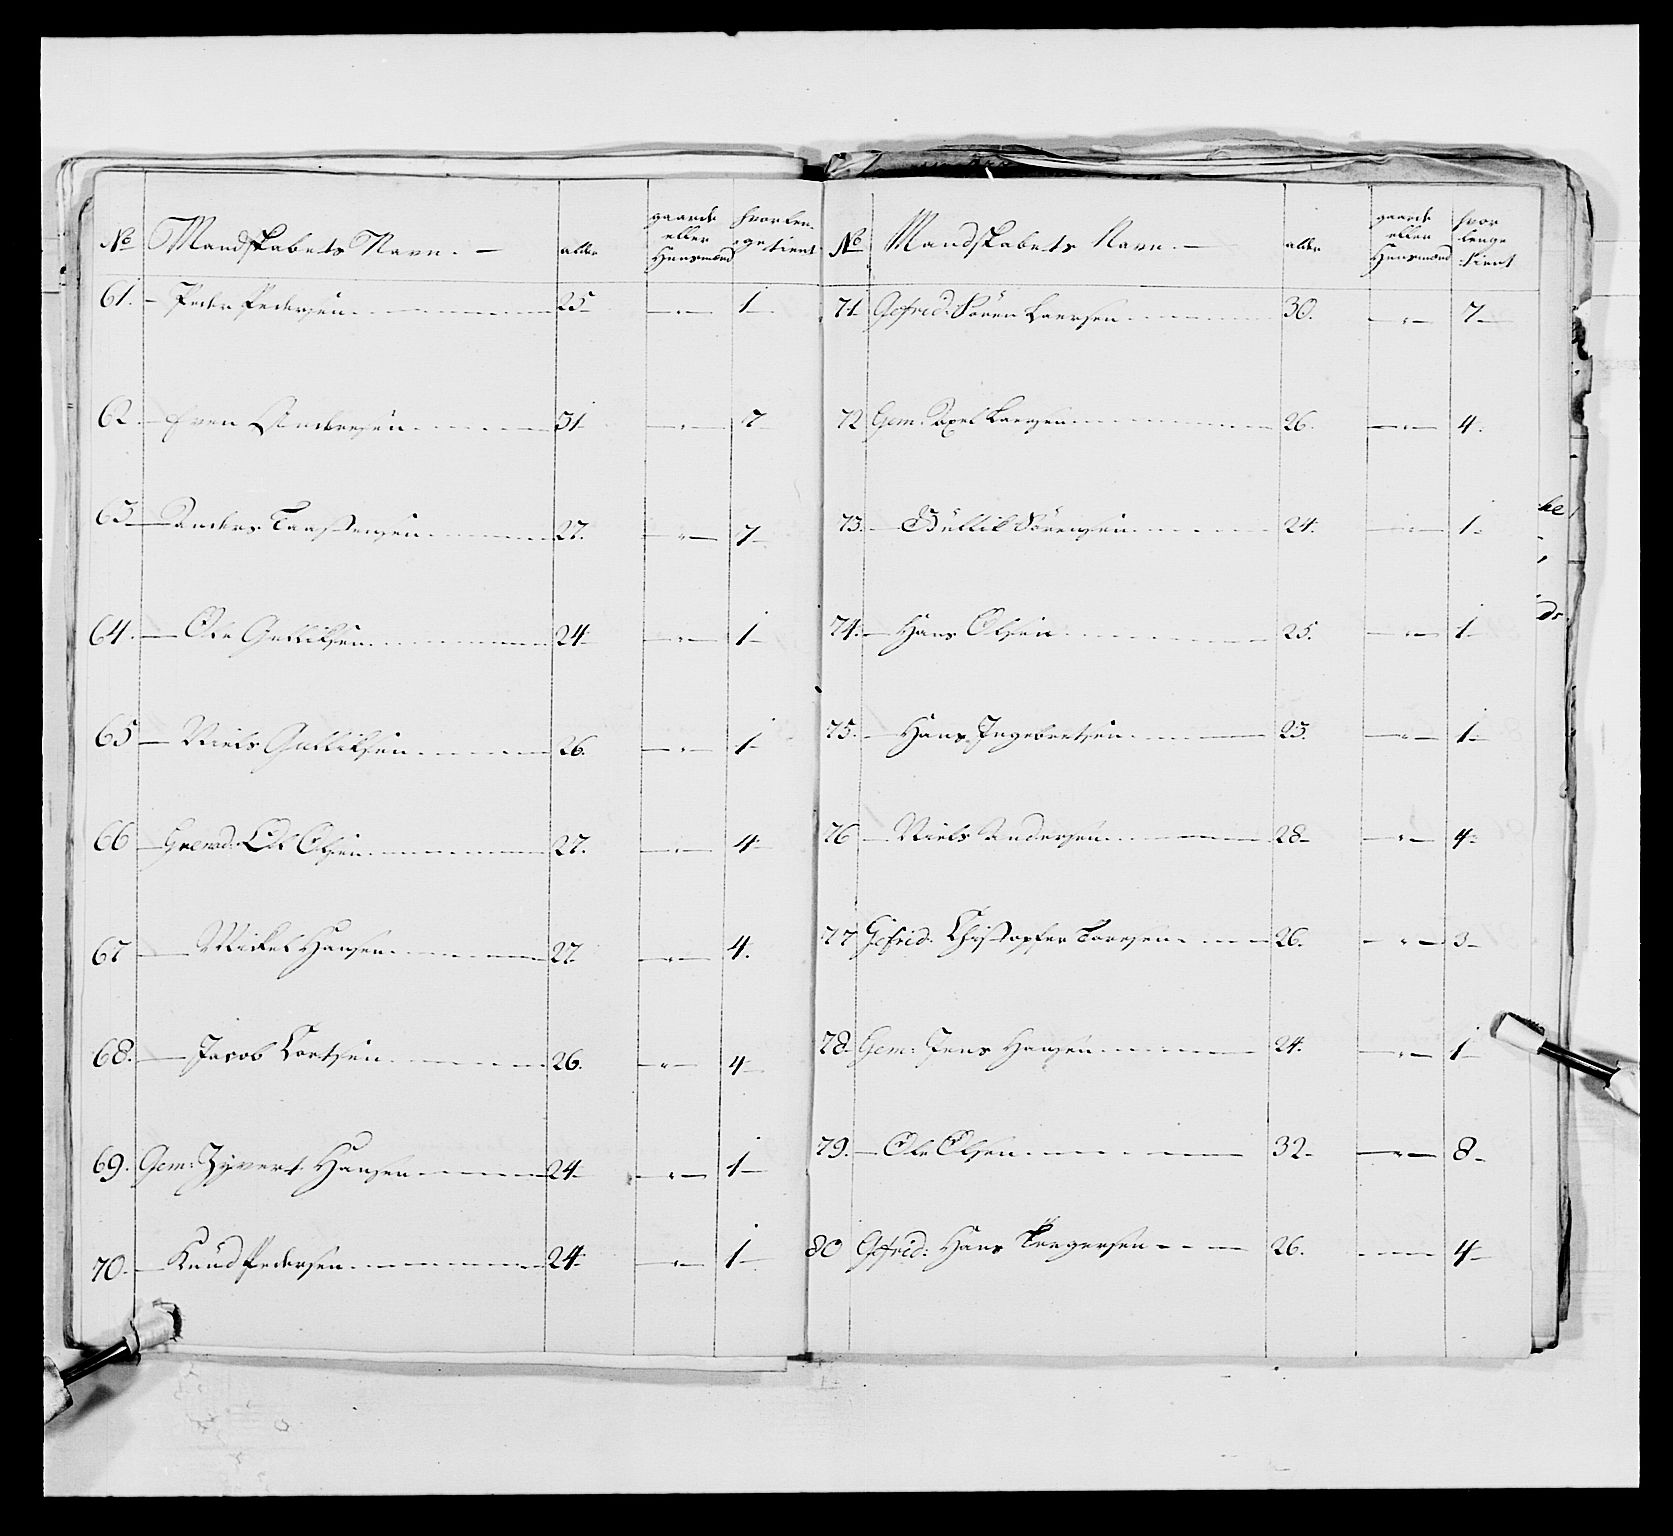 No Mandskabets Navn. — alder gaarde eller Huusmænd hvor len- ge tient
61. — Peder Pedersen 25 — " — 1
62. — Even Andersen 31 — " — 7
63 — Anders Taastensen 27. — " — 7
64. — Ole Gulliksen 24 — " — 1
65 — Niels Gulliksen 26. — " — 1
66 — Grenad: Ole Olsen 27. — " — 4
67 — Mickel Hansen 27. — " — 4.
68. — Jacob Hansen 26. — " — 4
69. Gem: Syvert Hansen 24 — " — 1
70. — Knud Pedersen 24 — " — 1
No Mandskabets Navn. — alder gaarde eller Huusmænd hvor lenge tient
71 Gefrid: Sören Laersen 30. — " — 7
72 Gem: Axel Laersen 26. — " — 4.
73. — Gullik Sörensen 24. — " — 1
74. — Hans Olsen 25. — " — 1
75. — Hans Ingebretsen 25. — " — 1
76 — Niels Andersen 28 — " — 4
77 Gefrid. Christopfer Laersen 26. — " — 3
78. Gem: Jens Hansen 24. — " — 1
79. — Ole Olsen 32. — " — 8
80 Gefrid: Hans 26. 4